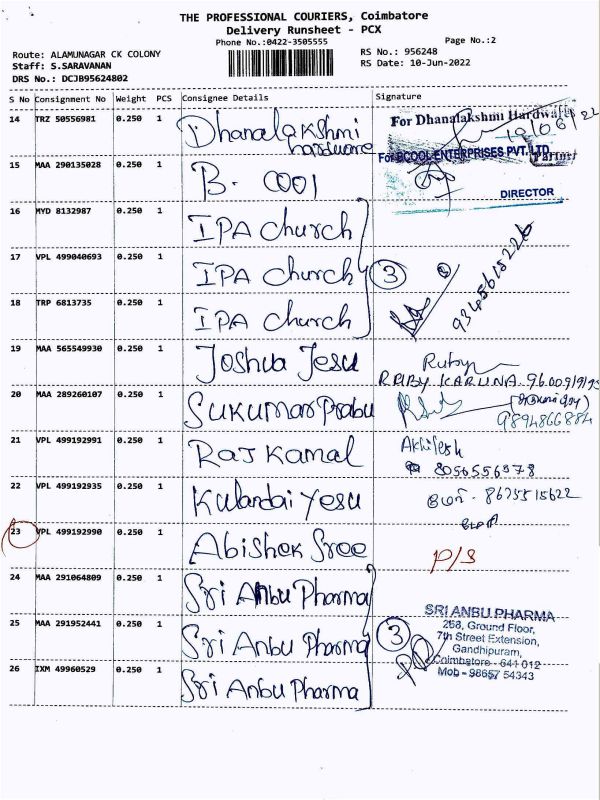 THE PROFESSIONAL COURIERS, Coimbatore
Delivery Runsheet - PCX
Phone No.:0422-3505555 Page No.:2
Route: ALAMUNAGAR CK COLONY RS No.: 956248
Staff: S.SARAVANAN RS Date: 10-Jun-2022
DRS No.: DCJB95624802
S No Consignment No Weight PCS Consignee Details Signature
14 TRZ 50556981 0.250 1 Dhanalakshmi hardware
For Dhanalakshmi Hardwares
10/06/22
Partner
15 MAA 290135028 0.250 1 B. COOl
For BCOOL ENTERPRISES PVT. LTD.
DIRECTOR
16 MYD 8132987 0.250 1 IPA Church
17 VPL 499040693 0.250 1 IPA Church 3
9345615226
18 TRP 6813735 0.250 1 IPA Church
19 MAA 565549930 0.250 1 Joshua Jesu Ruby
RUBY KARUNA
20 MAA 289260107 0.250 1 Sukumar Prabu
9894866884
21 VPL 499192991 0.250 1 Raj Kamal Akhilesh
8056556978
22 VPL 499192935 0.250 1 Kulandai Yesu 8675515622
23 VPL 499192990 0.250 1 Abishek Sree P/S
24 MAA 291064809 0.250 1 Sri Anbu Pharma
25 MAA 291952441 0.250 1 Sri Anbu Pharma 3
26 IXM 49960529 0.250 1 Sri Anbu Pharma
SRI ANBU PHARMA
258, Ground Floor,
7th Street Extension,
Gandhipuram,
Coimbatore - 641 012
Mob - 98657 54343